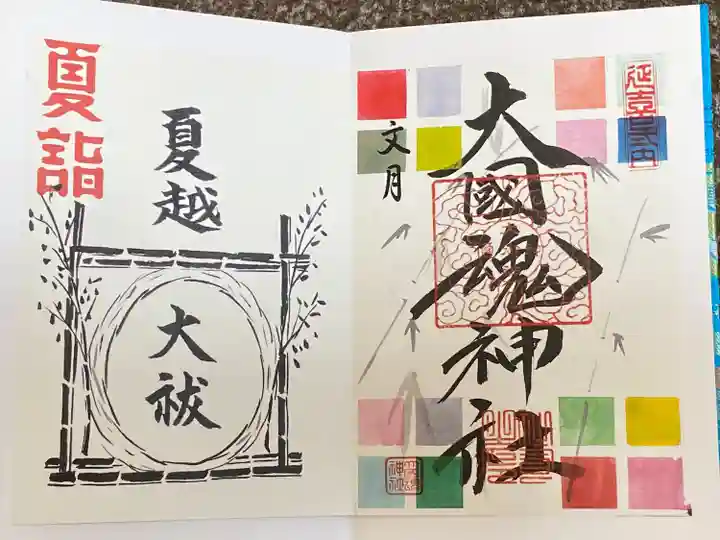 延喜式内
大國魂神社
文月
夏詣
夏越
大祓